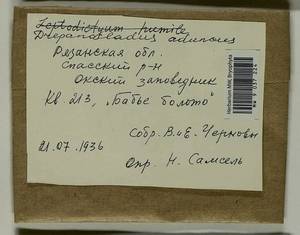 Leptodictyum humile
Drepanocladus aduncus
Рязанская обл.
Спасский р-н
Окский заповедник
Кв. 213, „Бабье болото"
Собр. В. и Е. Черновы
21.07.1936
Опр. Н. Самсель
Herbarium MW, Bryophyta
MW 9 037 224